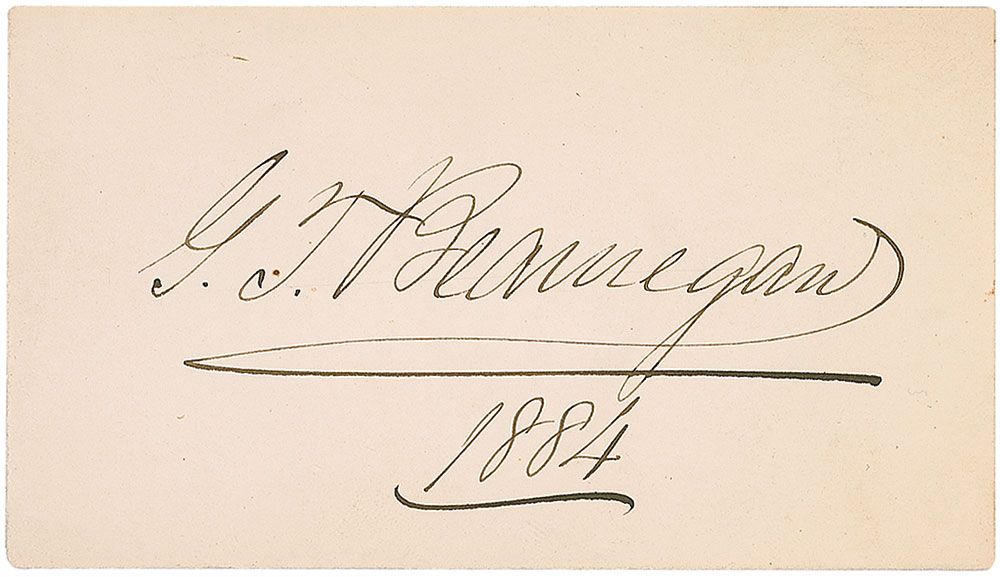 G. T. Beauregard
1884